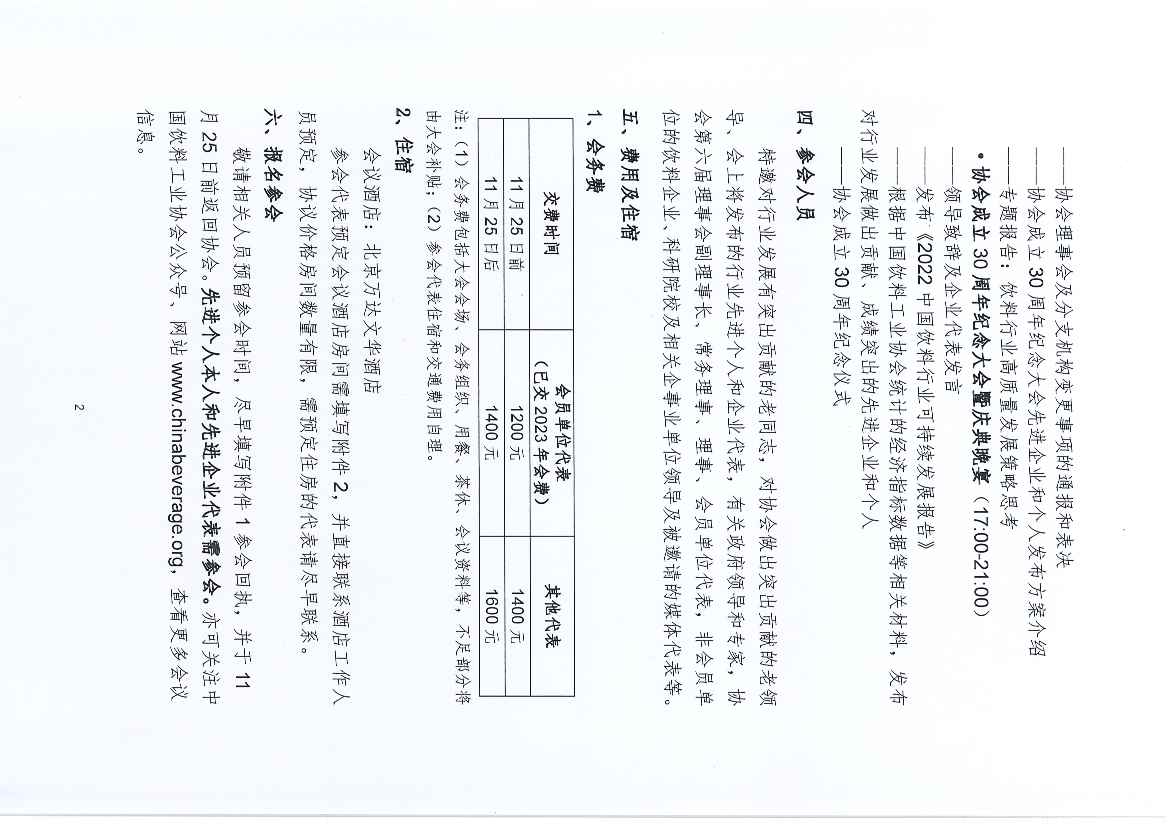 ——协会理事会及分支机构变更事项的通报和表决
——协会成立 30 周年纪念大会先进企业和个人发布方案介绍
——专题报告：饮料行业高质量发展策略思考
•协会成立 30 周年纪念大会暨庆典晚宴（17:00-21:00）
——领导致辞及企业代表发言
——发布《2022 中国饮料行业可持续发展报告》
——根据中国饮料工业协会统计的经济指标数据等相关材料，发布
对行业发展做出贡献、成绩突出的先进企业和个人
——协会成立 30 周年纪念仪式
四、参会人员
特邀对行业发展有突出贡献的老同志，对协会做出突出贡献的老领
导、会上将发布的行业先进个人和企业代表，有关政府领导和专家，协
会第六届理事会副理事长、常务理事、理事、会员单位代表，非会员单
位的饮料企业、科研院校及相关企事业单位领导及被邀请的媒体代表等。
五、费用及住宿
1、会务费
交费时间 会员单位代表（已交 2023 年会费） 其他代表
11 月 25 日前 1200 元 1400 元
11 月 25 日后 1400 元 1600 元
注：（1）会务费包括大会会场、会务组织、用餐、茶休、会议资料等，不足部分将
由大会补贴；（2）参会代表住宿和交通费用自理。
2、住宿
会议酒店：北京万达文华酒店
参会代表预定会议酒店房间需填写附件 2，并直接联系酒店工作人
员预定，协议价格房间数量有限，需预定住房的代表请尽早联系。
六、报名参会
敬请相关人员预留参会时间，尽早填写附件 1 参会回执，并于 11
月 25 日前返回协会。先进个人本人和先进企业代表需参会。亦可关注中
国饮料工业协会公众号、网站 www.chinabeverage.org，查看更多会议
信息。
2